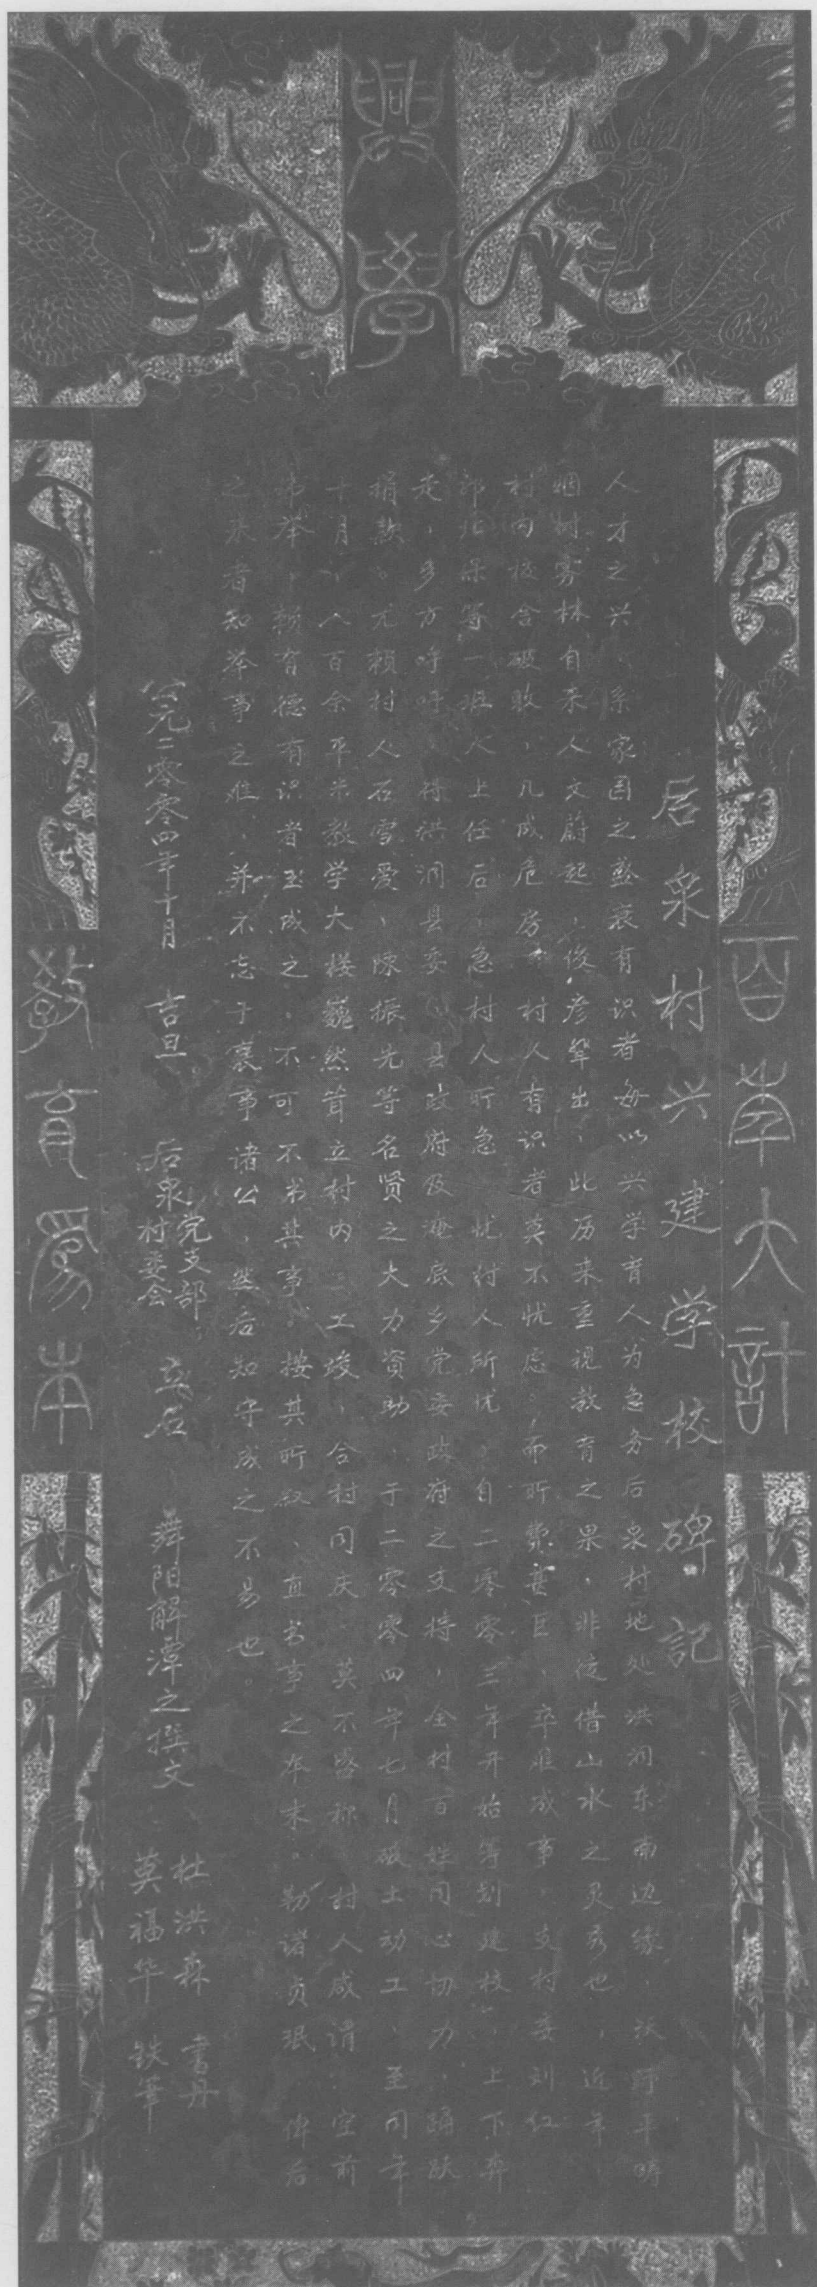 興學
百年大計
教育為本
后泉村兴建学校碑記
人才之兴，系家国之盛衰有识者每以兴学育人为急务后泉村地处洪洞东南边缘，沃野平畴
烟树雾林自来人文蔚起，俊彦辈出，此历来重视教育之果，非徒借山水之灵秀也，近年
村内校舍破败，几成危房，村人有识者莫不忧虑。而所费甚巨，卒难成事，支村委刘红
郭 等一班人上任后，急村人所急 忧村人所忧，自二零零三年开始筹划建校，上下奔
走，多方呼吁，将洪洞县委、县政府及淹底乡党委政府之支持，全村百姓同心协力，踊跃
捐款。尤赖村人石雪爱、陈振先等名贤之大力资助、于二零零四年七月破土动工、至同年
十月，八百余平米教学大楼巍然耸立村内，工竣，合村同庆，莫不啧称，村人咸谓：空前
举，赖有德有识者玉成之，不可不书其事。按其所叙、直书事之本末。勒诸贞珉，俾后
之来者知举事之难，并不忘于襄事诸公，然后知守成之不易也。
公元二零零四年十月 吉旦 后泉党支部村委会 立石 舜阳解潭之撰文 杜洪森 書丹 莫福华 铁筆